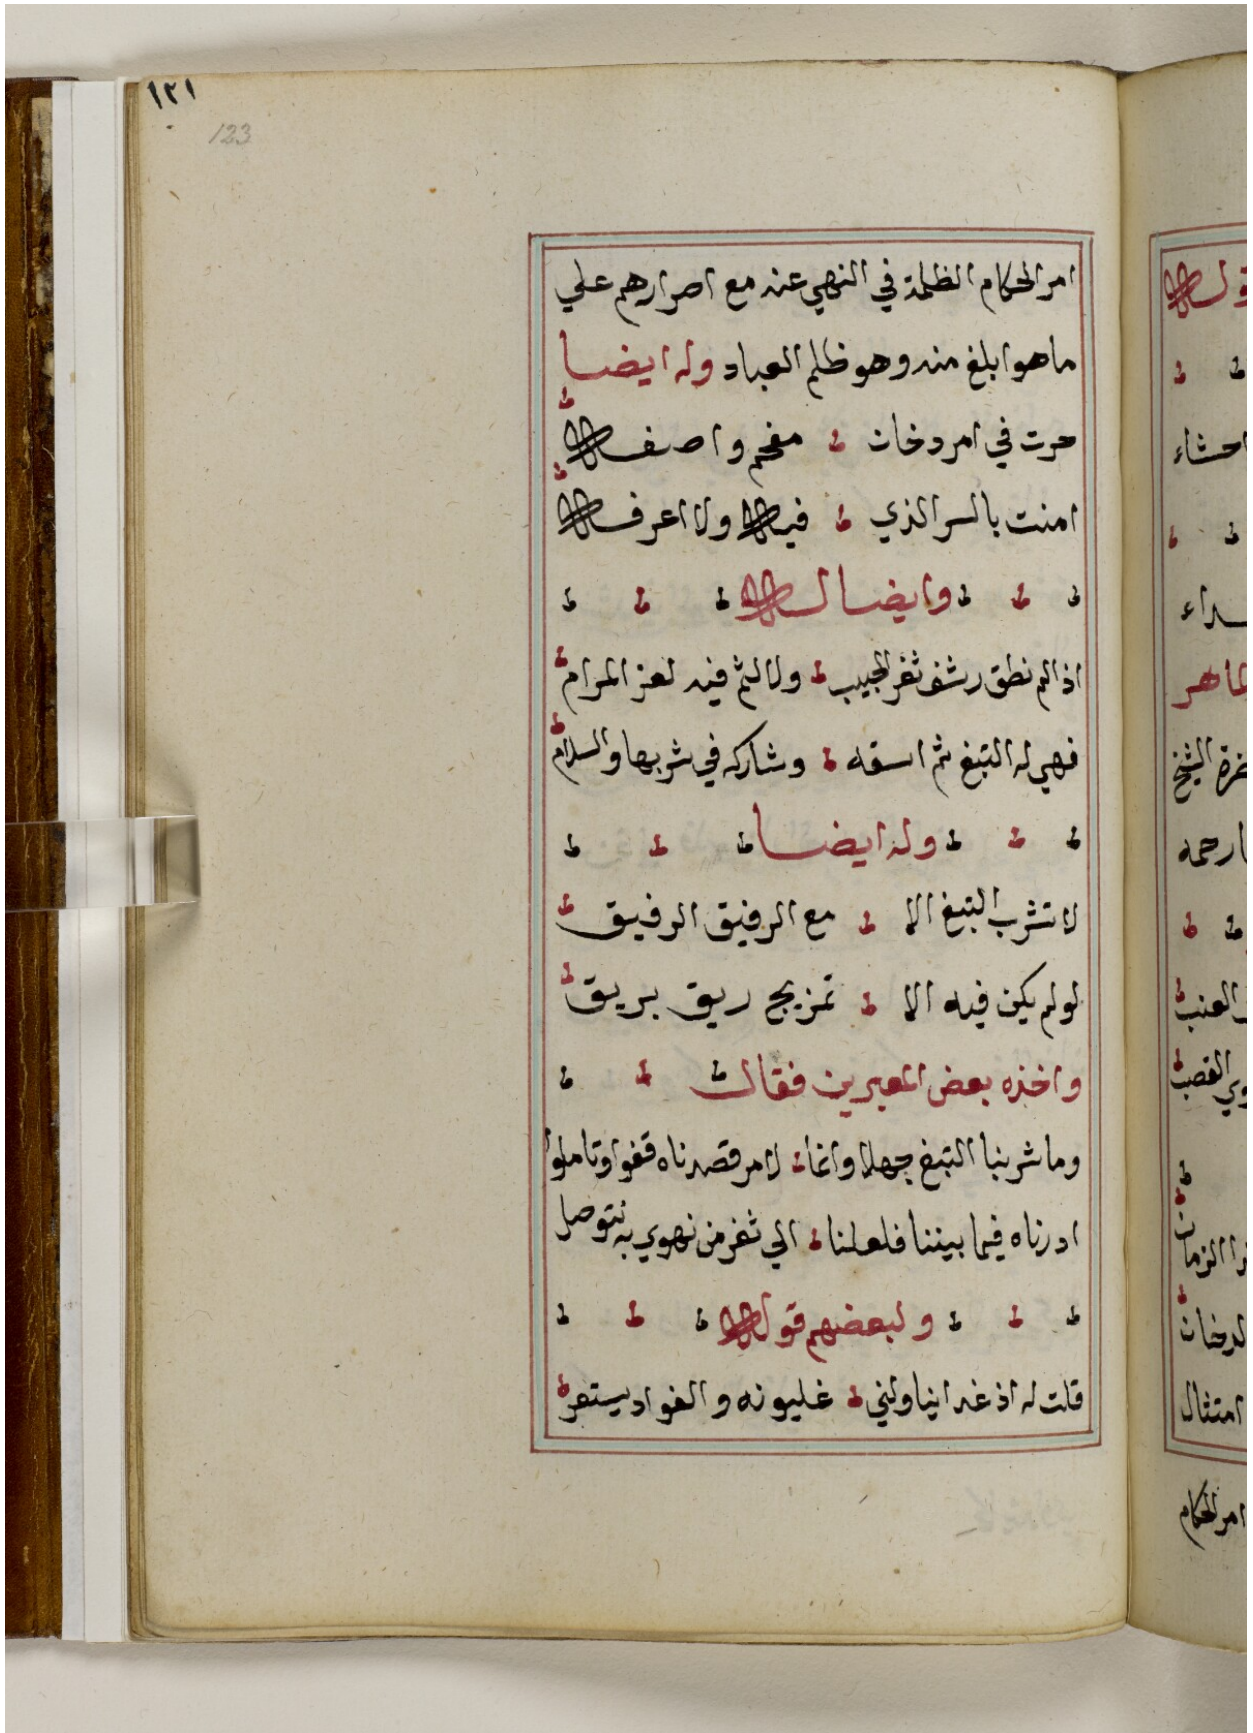 ١٢١
123
امر الحكام الظلمة في النهي عنه مع اصرارهم علي
ما هو ابلغ منه وهو ظلم العباد وله ايضا
حرت في امر دخان مفخم واصفه
امنت بالسر الذي فيه ولا اعرفه
وايضا له
اذا لم نطق رشف ثغر الحبيب ولا لثم فيه لعز المرام
فهي له التبغ ثم اسقه وشاركه في شربها والسلام
وله ايضا
لا تشرب التبغ الا مع الرفيق الرفيق
لو لم يكن فيه الا تمزيج ريق بريق
واخذه بعض المعبرين فقال
وما شربنا التبغ جهلا وانما لامر قصدناه قفوا وتاملوا
ادرناه فيما بيننا فلعلنا الي ثغر من نهوي به نتوصل
ولبعضهم قوله
قلت له اذ غدا يناولني غليونه والفواد يستعر
قوله
احشاء
ماهر
الشيخ
ارحمه
العنب
القصب
الزمان
الدخان
امتثال
امر الحكام